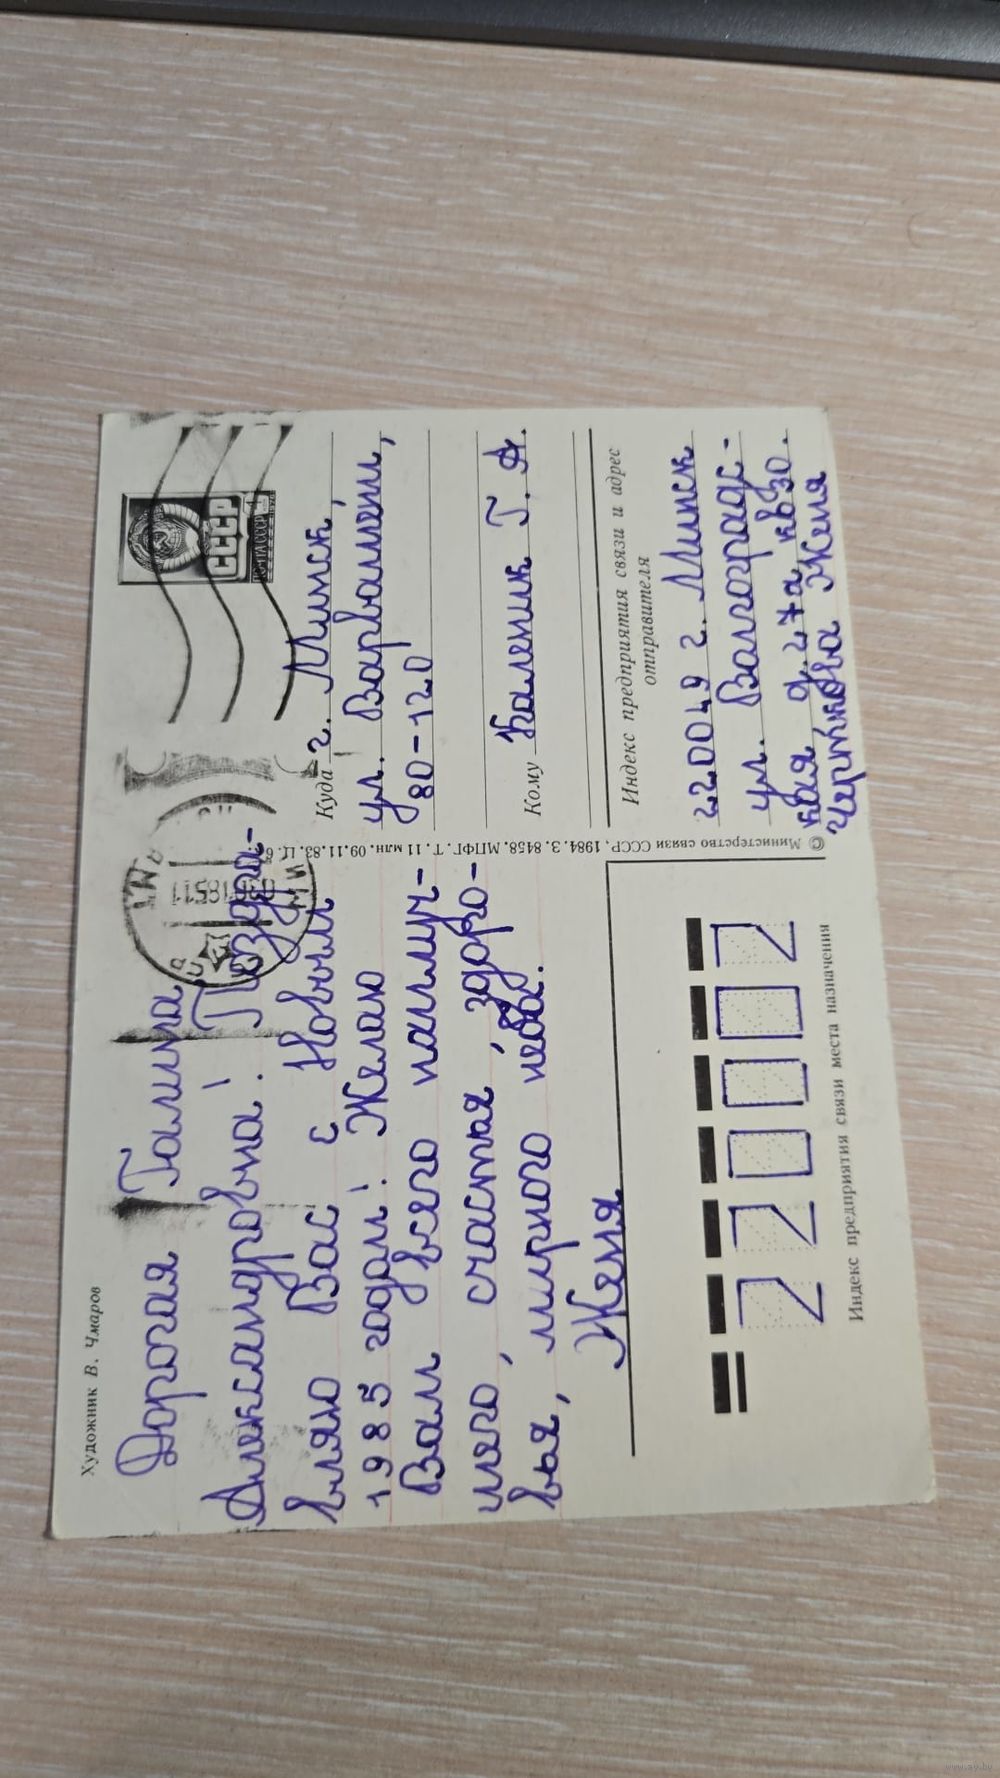 Художник В. Чмаров
Дорогая Галина
Александровна! Поздра-
вляю Вас с Новым
1985 годом! Желаю
Вам всего наилуч-
шего, счастья, здоро-
вья, мирного неба.
Женя
ПОЧТА СССР
СССР
Куда г. Минск,
ул. Варвашени,
80-120
Кому Каленик Г. А.
Индекс предприятия связи и адрес
отправителя
220049 г. Минск
ул. Волгоградс-
кая д. 27а кв 30.
Женя
© Министерство связи СССР. 1984. З. 8458. МПФГ. Т. 11 млн. 09.11.83. Ц.
220002
Индекс предприятия связи места назначения